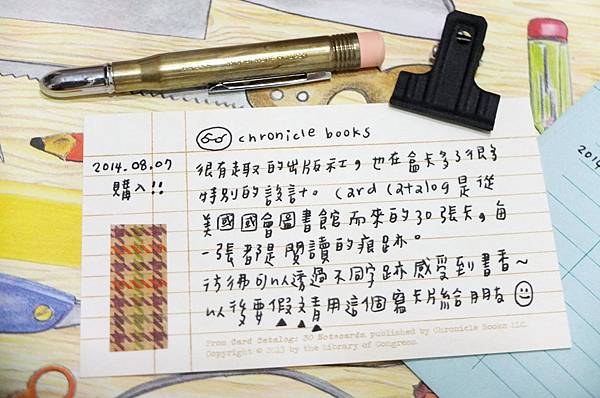 chronicle books
2014.08.07
購入!!
很有趣的出版社，也在盒卡多了很多
特別的設計。Card Catalog是從
美國國會圖書館而來的30張卡，每
一張都是閱讀的痕跡。
彷彿可以透過不同字跡感受到書香~
以後要假文青用這個寫卡片給朋友
From Card Catalog: 30 Notecards, published by Chronicle Books LLC.
Copyright © 2013 by the Library of Congress.